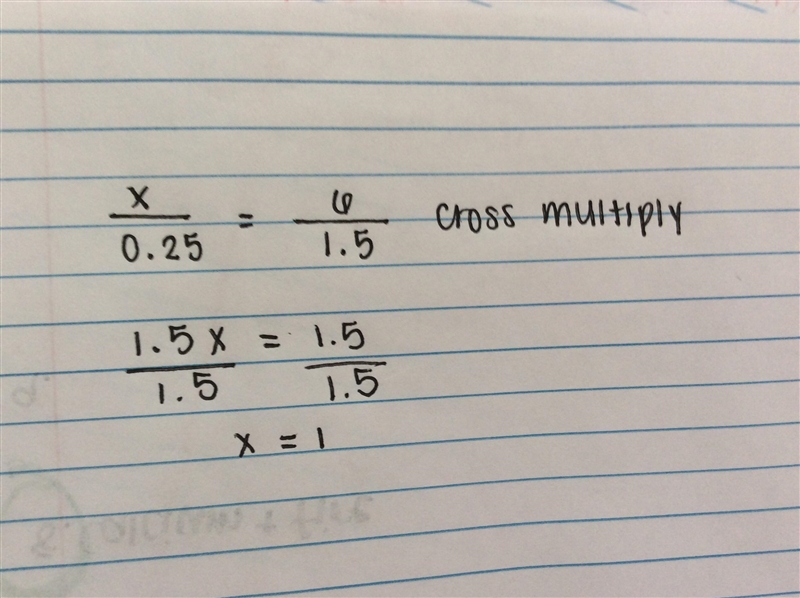 x/0.25 = 6/1.5 cross multiply
1.5x/1.5 = 1.5/1.5
x = 1